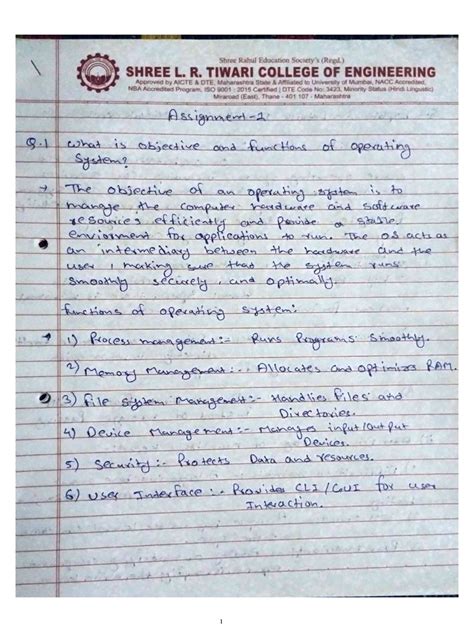 Shree Rahul Education Society's (Regd.)
SHREE L. R. TIWARI COLLEGE OF ENGINEERING
Approved by AICTE & DTE, Maharashtra State & Affiliated to University of Mumbai, NACC Accredited,
NBA Accredited Program, ISO 9001 : 2015 Certified | DTE Code No: 3423, Minority Status (Hindi Linguistic)
Miraroad (East), Thane - 401 107 - Maharashtra
Assignment-2
Q.1 What is objective and functions of operating
System?
→ The objective of an operating system is to
manage the computer hardware and software
resources efficiently and provide a stable
enviorment for applications to run. The OS acts as
an intermediary between the hardware and the
user, making sure that the system runs
smoothly securely, and optimally.
functions of operating system:
→ 1) Process management:- Runs Programs Smoothly.
2) Memory Management:- Allocates and optimizes RAM.
3) File System Management:- Handlies files and
Directories.
4) Device Management:- Manages input/output
Devices.
5) Security:- Protects Data and resources.
6) User Interface:- Provides CLI/GUI for user
Interaction.
1